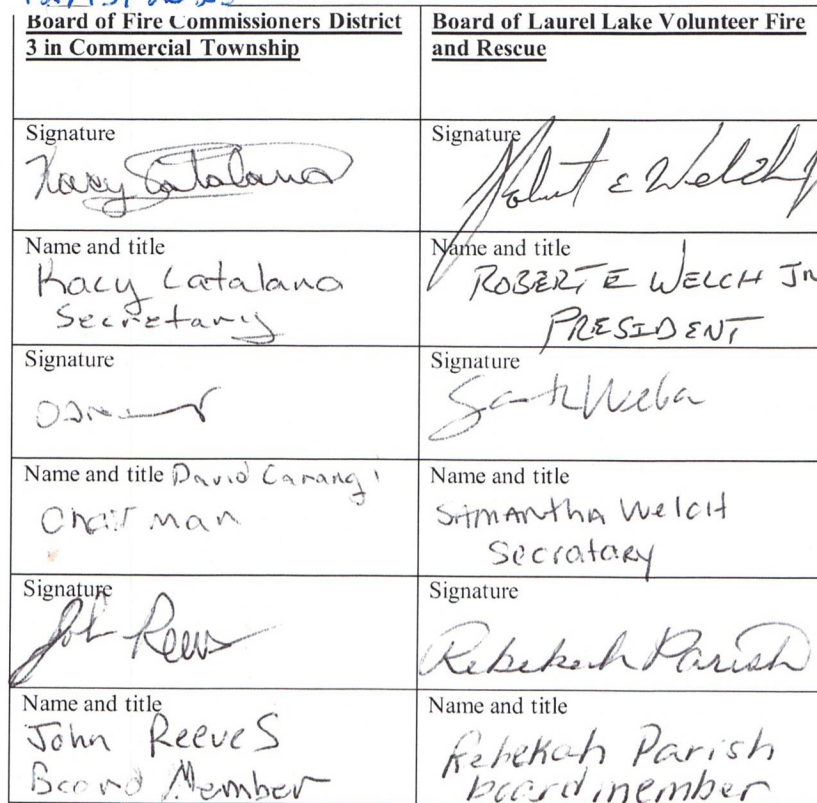 Board of Fire Commissioners District
3 in Commercial Township
Board of Laurel Lake Volunteer Fire
and Rescue
Signature
Kacy Catalana
Signature
Robert E Welch Jr
Name and title
Kacy Catalana
Secretary
Name and title
ROBERT E WELCH JR
PRESIDENT
Signature
Signature
Name and title David Carangi
Chairman
Name and title
SAMANTHA WELCH
Secratary
Signature
John Reeves
Signature
Rebekah Parish
Name and title
John Reeves
Board Member
Name and title
Rebekah Parish
board member